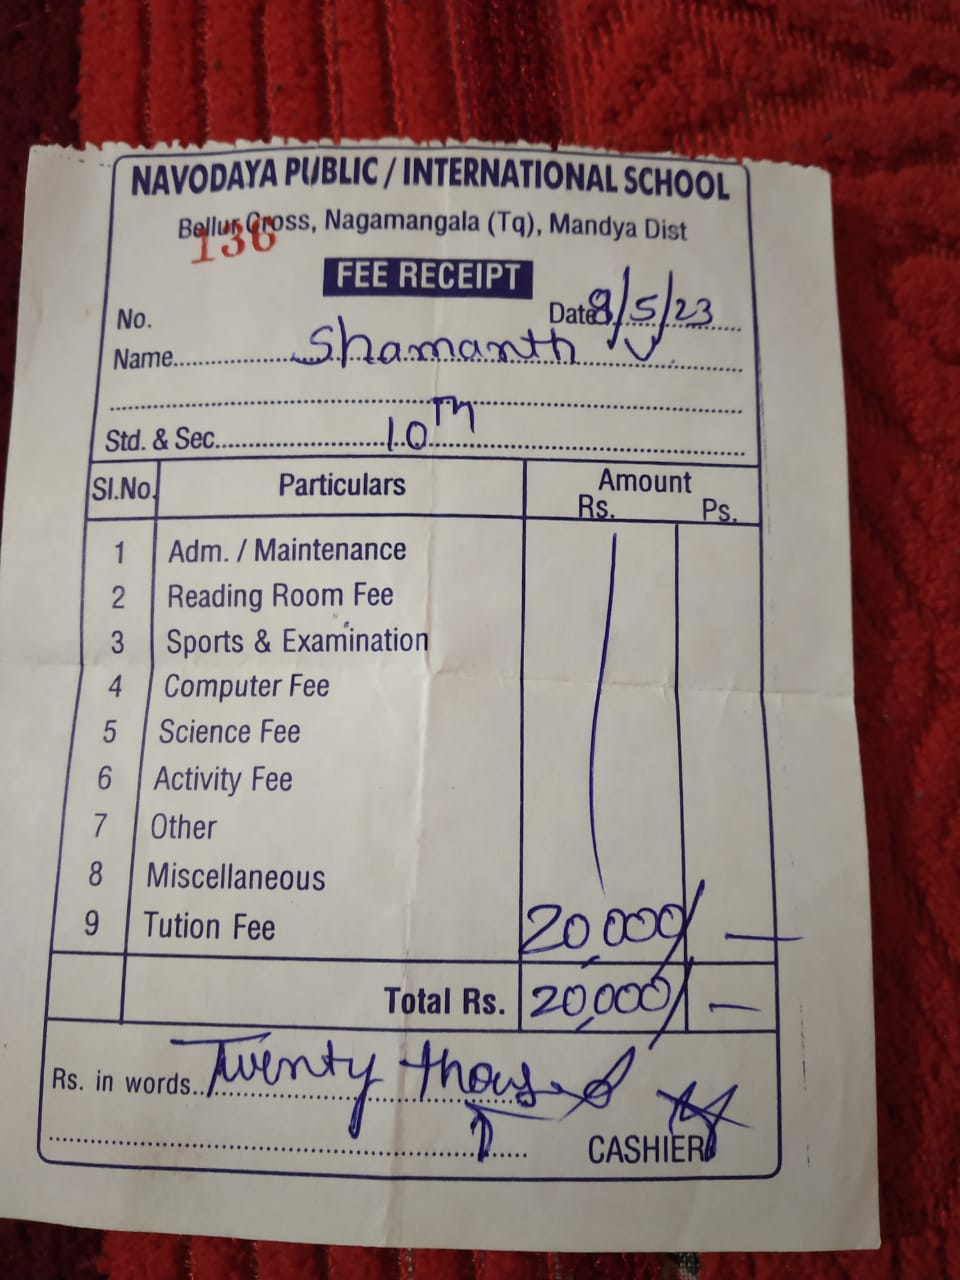 NAVODAYA PUBLIC / INTERNATIONAL SCHOOL
Bellur Cross, Nagamangala (Tq), Mandya Dist
136
FEE RECEIPT
No. Date 9/5/23
Name Shamanth V
Std. & Sec. 10Th
Sl.No. Particulars Amount
Rs. Ps.
1 Adm. / Maintenance
2 Reading Room Fee
3 Sports & Examination
4 Computer Fee
5 Science Fee
6 Activity Fee
7 Other
8 Miscellaneous
9 Tution Fee 20,000/ —
Total Rs. 20,000/ —
Rs. in words Twenty thous
CASHIER